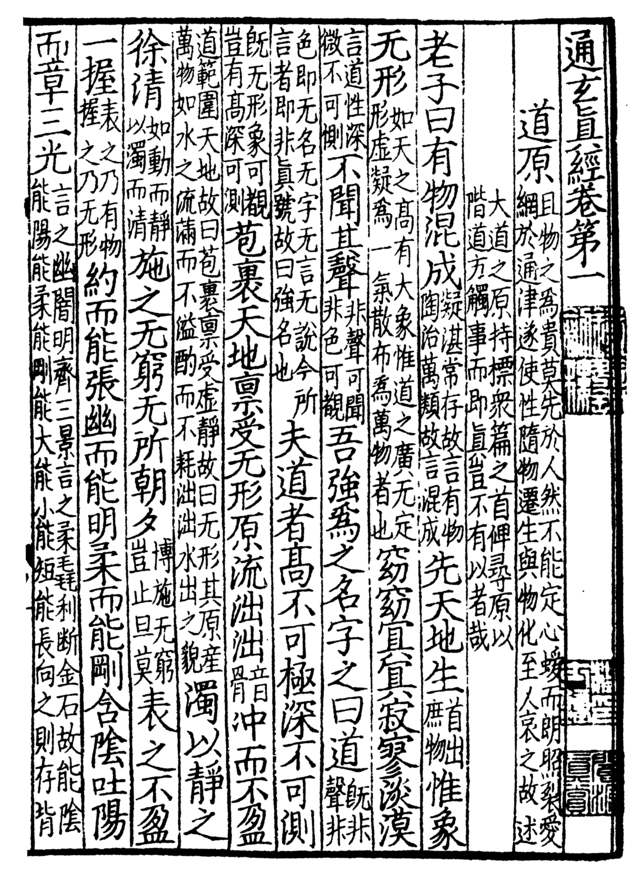 通玄眞經卷第一
道原且物之為貴莫先於人然不能定心蝯而朗照裂愛綱於通津遂使性隨物遷生與物化至人哀之故述
大道之原持標衆篇之首俾尋原以階道方觸事而即眞豈不有以者哉
老子曰有物混成凝湛常存故言有物陶冶萬類故言混成先天地生首出庶物惟象
无形如天之高有大象惟道之廣无定形虛凝為一氣散布為萬物者也窈窈冥冥寂寥淡漠
言道性深微不可測不聞其聲非聲可聞非色可觀吾強為之名字之曰道旣非聲非
色即无名无字无言无說今所言者即非眞號故曰強名也夫道者高不可極深不可測
旣无形象可觀豈有高深可測苞裹天地稟受无形原流泏泏音骨冲而不盈
道範圍天地故曰苞裹禀受虛靜故曰无形其原産萬物如水之流滿而不溢酌而不耗泏泏水出之貌濁以靜之
徐清如動而靜以濁而清施之无窮无所朝夕博施无窮豈止旦莫表之不盈
一握表之乃有物握之乃无形約而能張幽而能明柔而能剛含陰吐陽
而章三光言之幽闇明齊三景言之柔毳利断金石故能陰能陽能柔能剛能大能小能短能長向之則存背